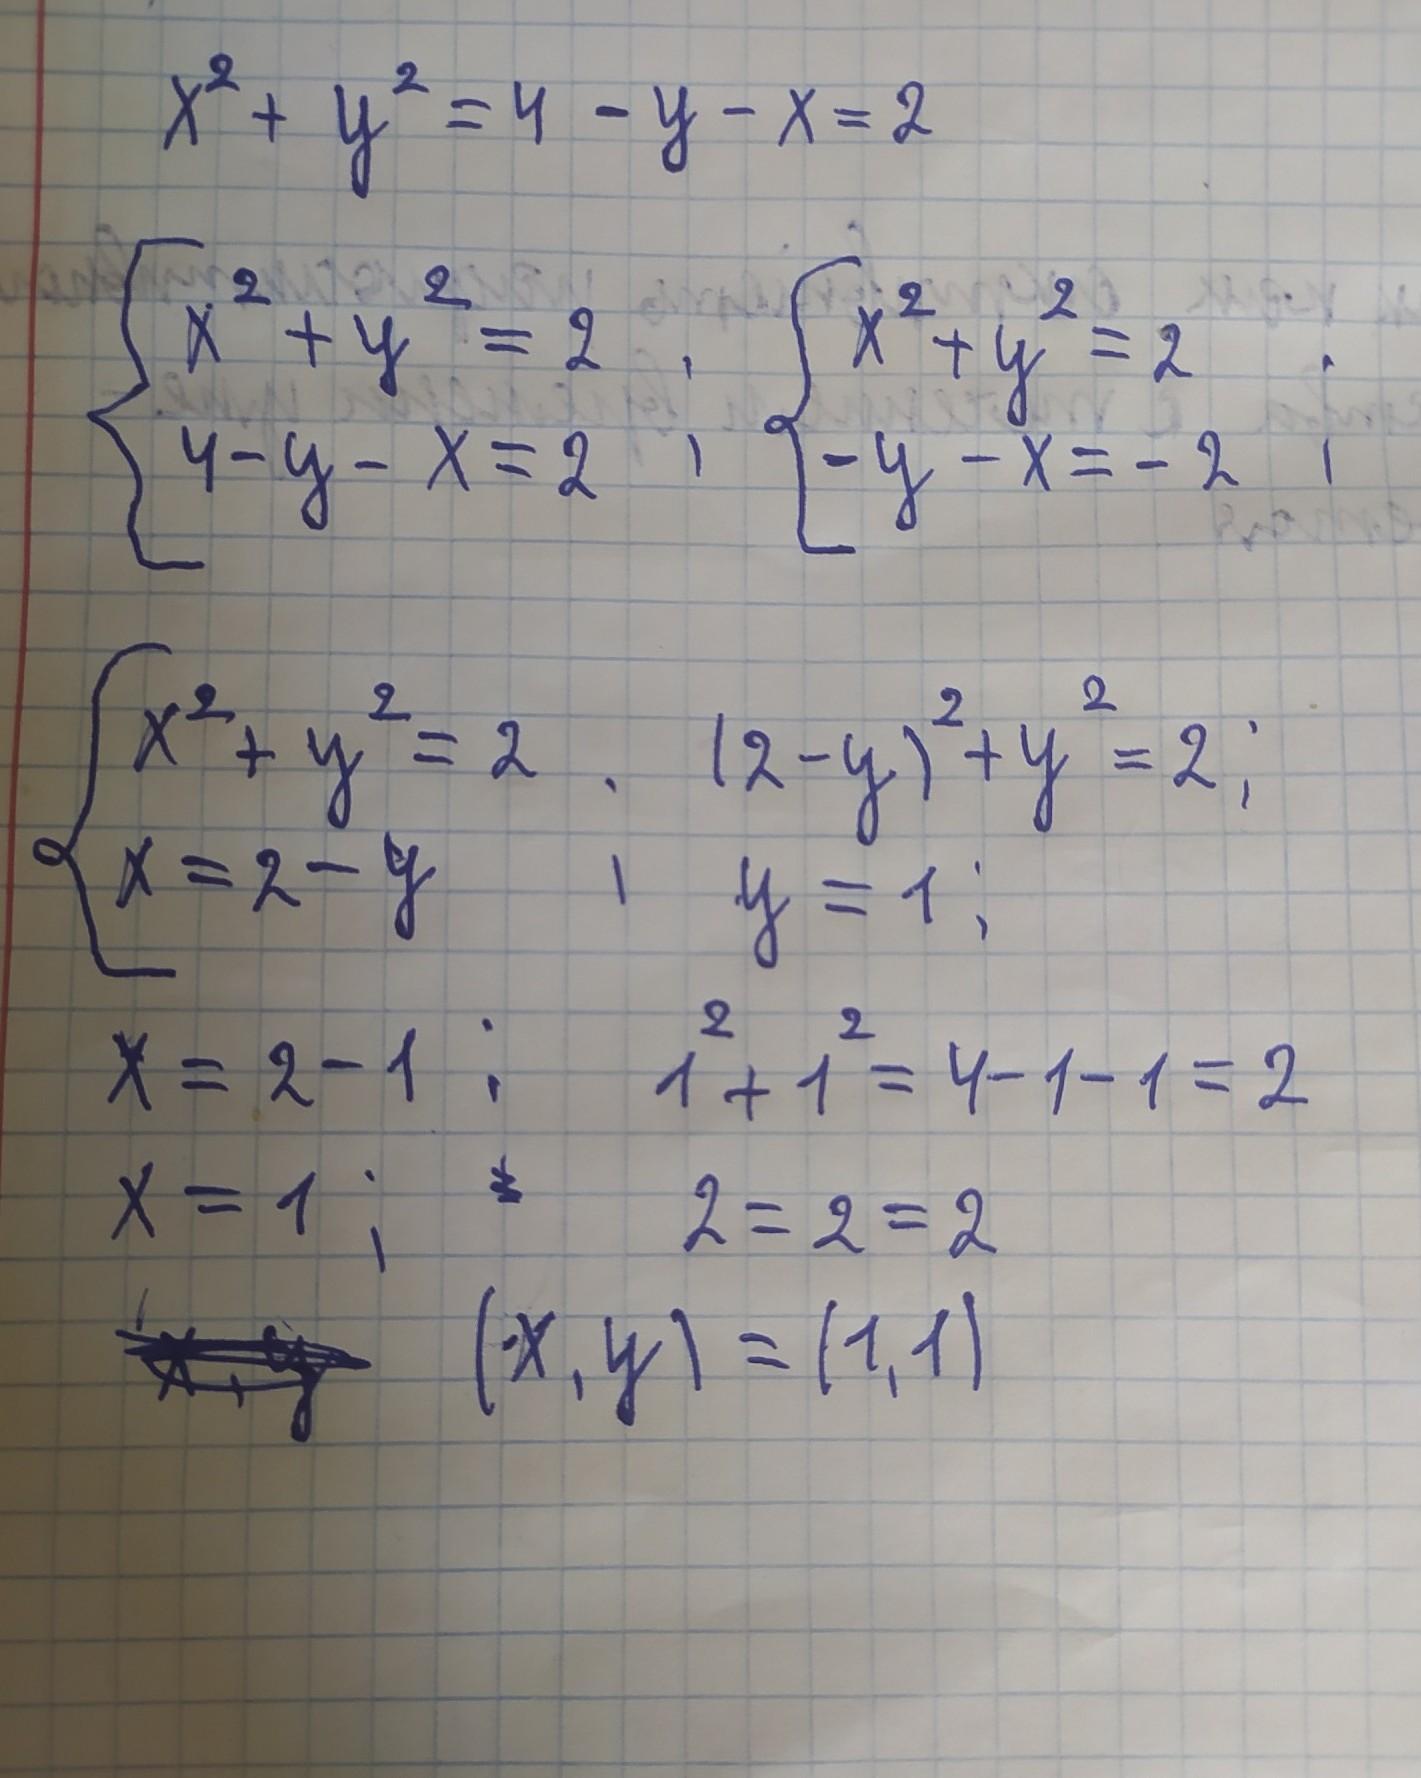 x² + y² = 4 - y - x = 2
{ x² + y² = 2 ; { x² + y² = 2 ;
4 - y - x = 2 - y - x = - 2
{ x² + y² = 2 ; (2 - y)² + y² = 2 ;
x = 2 - y y = 1 ;
x = 2 - 1 ; 1² + 1² = 4 - 1 - 1 = 2
x = 1 ; 2 = 2 = 2
(x, y) = (1, 1)